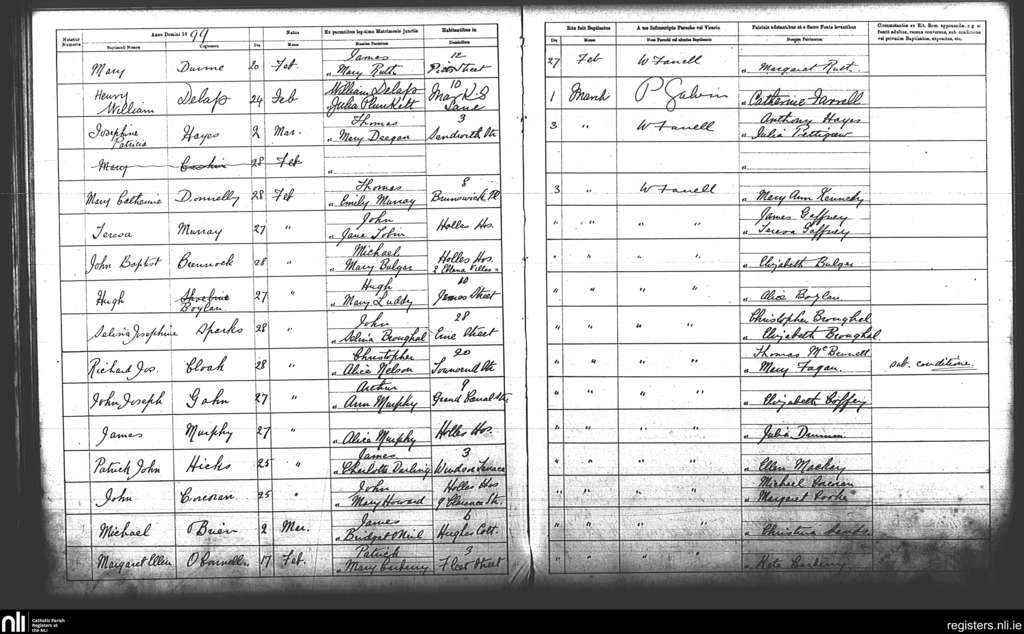 Anno Domini 1899
Notatur Numerus
Baptizati Nomen
Cognomen
Natus
Die
Mense
Ex parentibus legitimo Matrimonio junctis
Nomina Parentum
Habitantibus in
Domicilium
Mary Dunne 20 Feb. James 12
„ Mary Ruth Pitt Street
Henry William Delass 24 Feb William Delass 10
„ Julia Plunkett Mark's Lane
Josephine Patricia Hayes 2 Mar. Thomas 3
„ Mary Deegan Sandwith St.
Mary 28 Feb
„
Mary Catherine Donnelly 28 Feb Thomas 8
„ Emily Murray Brunswick Pl
Teresa Murray 27 " John
„ Jane Tobin Holles Hos.
John Baptist Brennock 28 " Michael Holles Hos.
„ Mary Bulger
Hugh Boylan 27 " Hugh
„ Mary Luddy James Street
Selina Josephine Sparks 28 " John 28
„ Selina Broughal Erne Street
Richard Jos. Cloak 28 " Christopher 20
„ Alice Nelson Townsend St.
John Joseph Gahn 27 " Arthur 9
„ Ann Murphy Grand Canal St.
James Murphy 27 "
„ Alice Murphy Holles Hos.
Patrick John Hicks 25 " James 3
„ Charlotte Darling Windsor Terrace
John Corcoran 25 " John Holles Hos
„ Mary Howard 9 Clarence St.
Michael O'Brien 2 Mar. James 6
„ Bridget O'Neil Hughes Cott.
Margaret Ellen O'Connell 17 Feb. Patrick 3
„ Mary Carberry Fleet Street
Rite fuit Baptizatus
Die
Mense
A me Infrascripto Parocho vel Vicario
Nom Parochi vel aliusve Baptizantis
Patrinis adstantibus et a Sacro Fonte levantibus
Nomina Patrinorum
27 Feb W Farrell
„ Margaret Rust.
1 March P Galvin
„ Catherine Farrell
3 " W Farrell Anthony Hayes
„ Julia Pettigrew
„
3 " W Farrell
„ Mary Ann Kennedy
" " " " James Gaffney
„ Teresa Gaffney
" " " "
„ Elizabeth Bulger
" " " "
„ Alice Boylan.
" " " " Christopher Broughal
„ Elizabeth Broughal
" " " " Thomas McBennett
„ Mary Fagan. sub. conditione.
" " " "
„ Elizabeth Coffey
" " " "
„ Julia
" " " "
„ Ellen Mackey
" " " " Michael Corcoran
„ Margaret Rooke
" " " "
„ Christina
" " " "
„ Kate Carberry
nli
Catholic Parish
Registers at
the NLI
registers.nli.ie